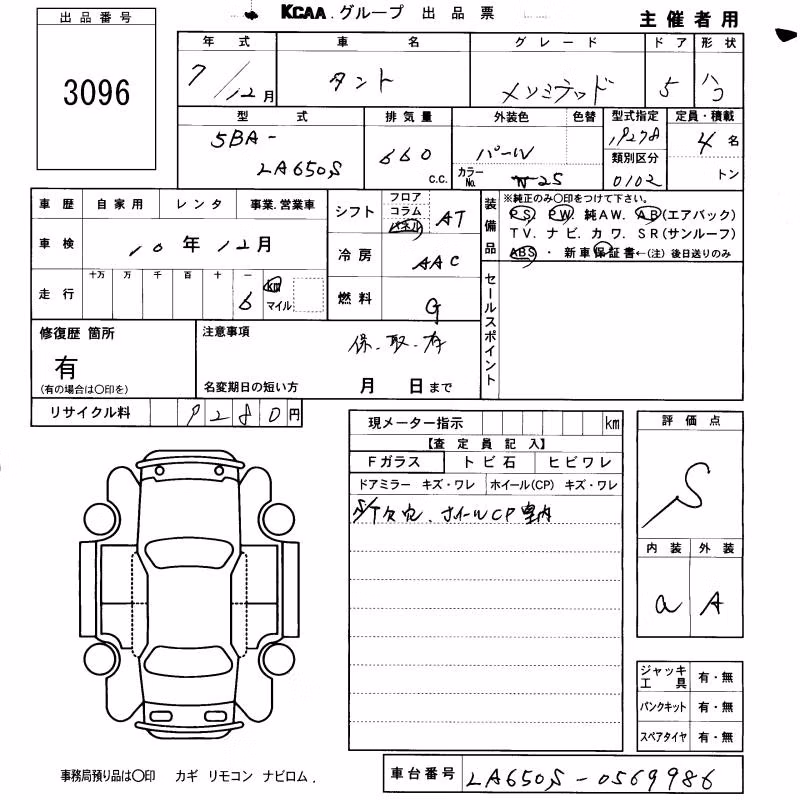 KCAA.グループ 出品票
主催者用
出品番号
3096
年式 車名 グレード ドア 形状
7/12月 タント 5 ハコ
型式 排気量 外装色 色替 型式指定 定員・積載
5BA-
LA650S
660
c.c.
パール
カラーNo. W25
19278
類別区分
0102
4名
トン
車歴 自家用 レンタ 事業.営業車
車検 10年12月
走行 十万 万 千 百 十 一
6 km
マイル
シフト フロア
コラム
パネル
AT
冷房 AAC
燃料 G
装備品 ※純正のみ○印をつけて下さい。
PS. PW. 純AW. AB(エアバック)
TV. ナビ. カワ. SR(サンルーフ)
ABS・新車保証書←(注)後日送りのみ
セールスポイント
修復歴 箇所
有
(有の場合は○印を)
注意事項
保.取.有
名変期日の短い方 月 日まで
リサイクル料 9280円
現メーター指示 km
【査定員記入】
Fガラス トビ石 ヒビワレ
ドアミラー キズ・ワレ ホイール(CP) キズ・ワレ
S/T欠穴.ホイールCP室内
評価点
S
内装 外装
a A
ジャッキ工具 有・無
パンクキット 有・無
スペアタイヤ 有・無
事務局預り品は○印 カギ リモコン ナビロム.
車台番号 LA650S-0569986